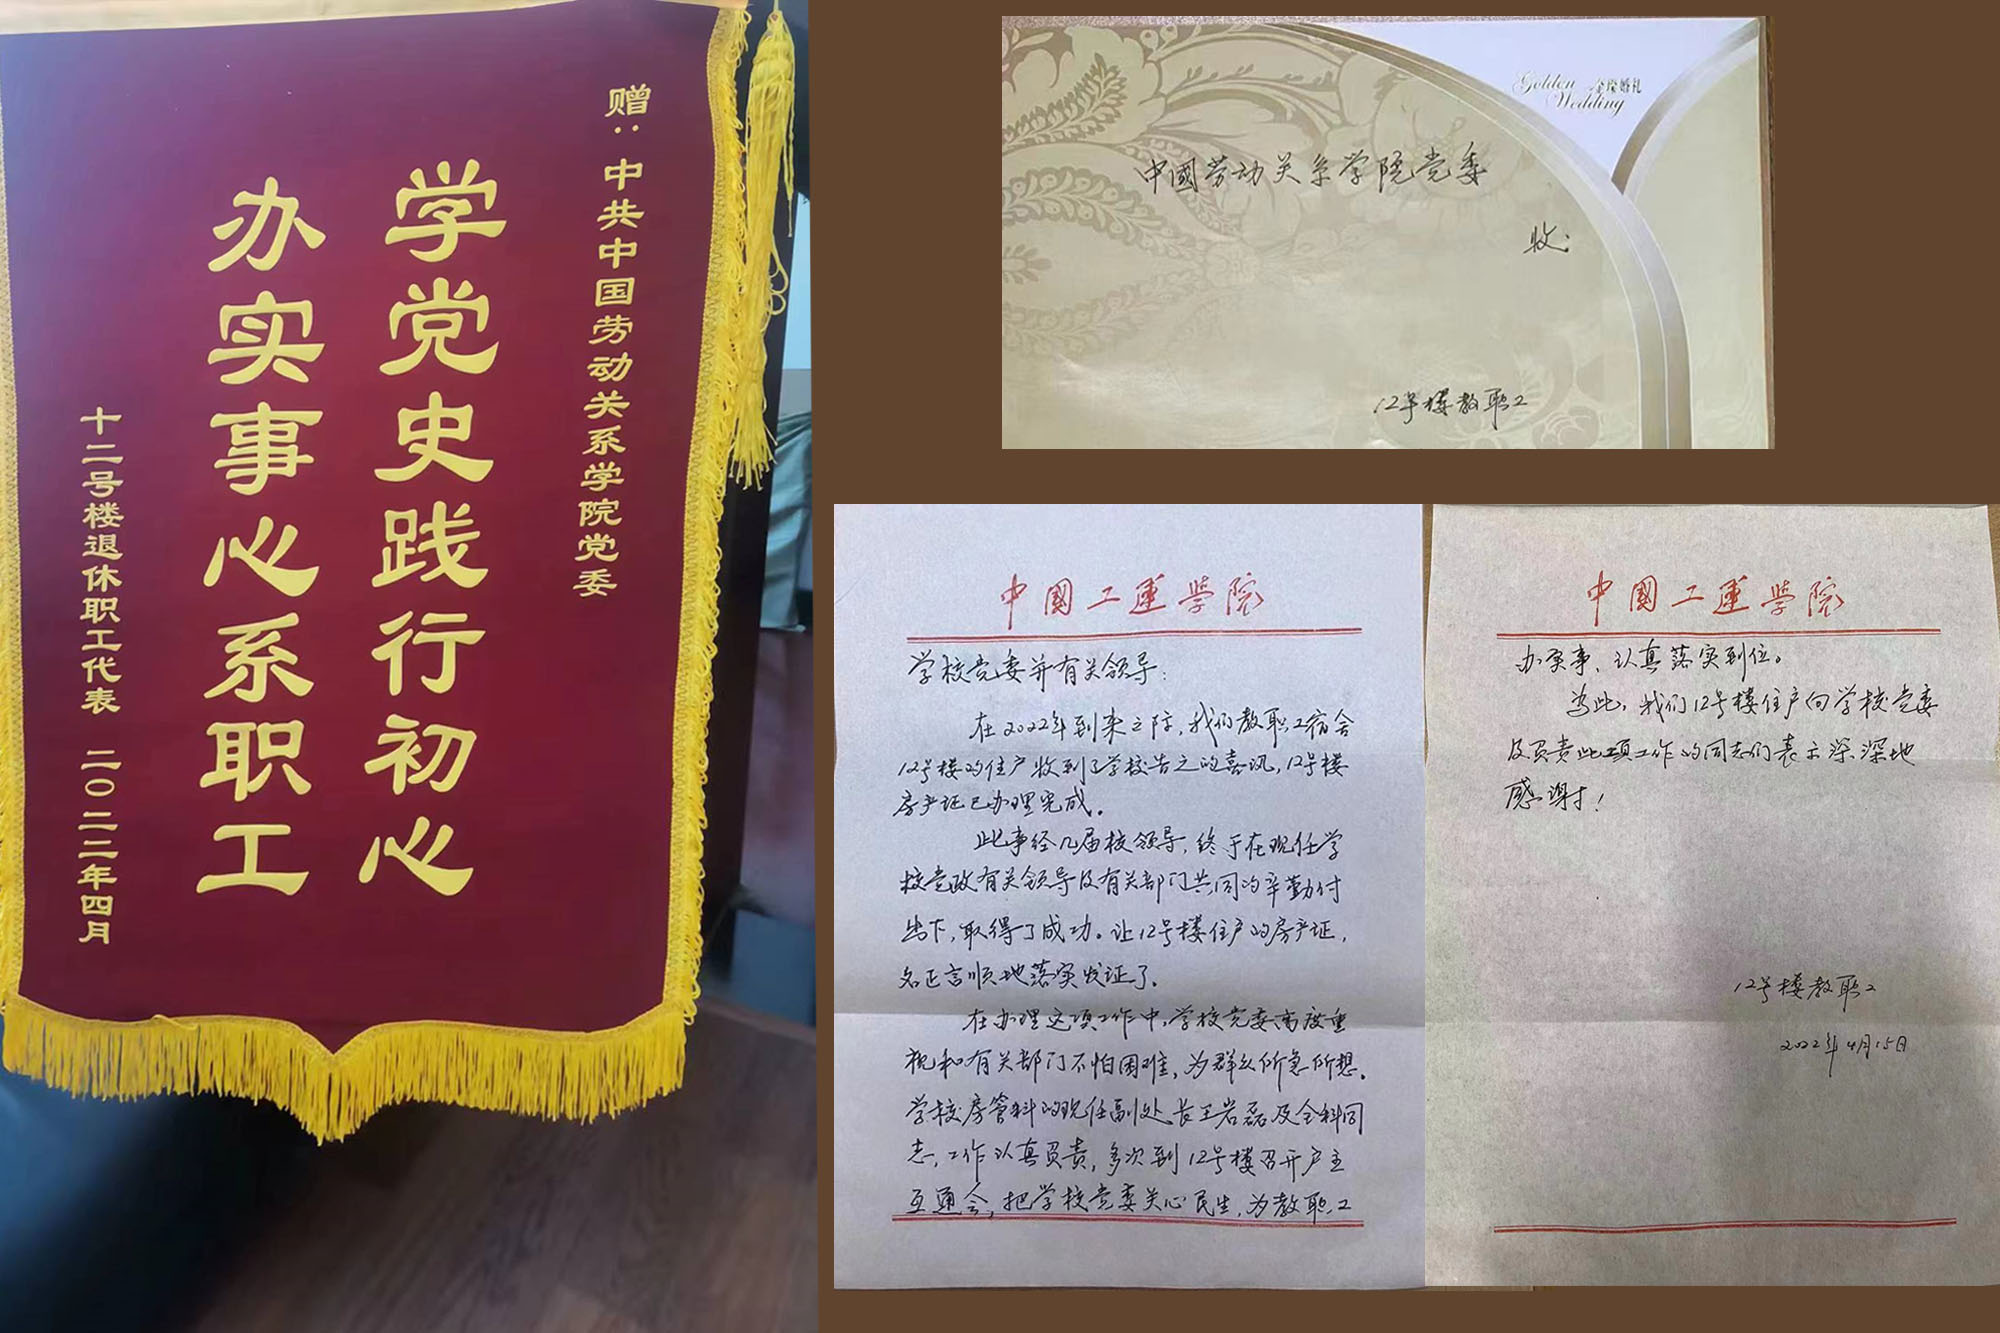 赠：中共中国劳动关系学院党委
学党史践行初心
办实事心系职工
十二号楼退休职工代表 二〇二二年四月
Golden Wedding 金璨婚礼
中國劳动关系学院党委
收：
12号楼教职工
中國工運學院
学校党委并有关领导：
在2022年到来之际，我们教职工宿舍
12号楼的住户收到了学校告之的喜讯，12号楼
房产证已办理完成。
此事经几届校领导，终于在现任学
校党政有关领导及有关部门共同的辛勤付
出下，取得了成功。让12号楼住户的房产证，
名正言顺地落实发证了。
在办理这项工作中，学校党委高度重
视和有关部门不怕困难，为群众所急所想。
学校房管科的现任副处长王岩磊及全科同
志，工作认真负责，多次到12号楼召开户主
互通会，把学校党委关心民生，为教职工
中國工運學院
办实事、认真落实到位。
为此，我们12号楼住户向学校党委
及负责此项工作的同志们表示深深地
感谢！
12号楼教职工
2022年4月15日